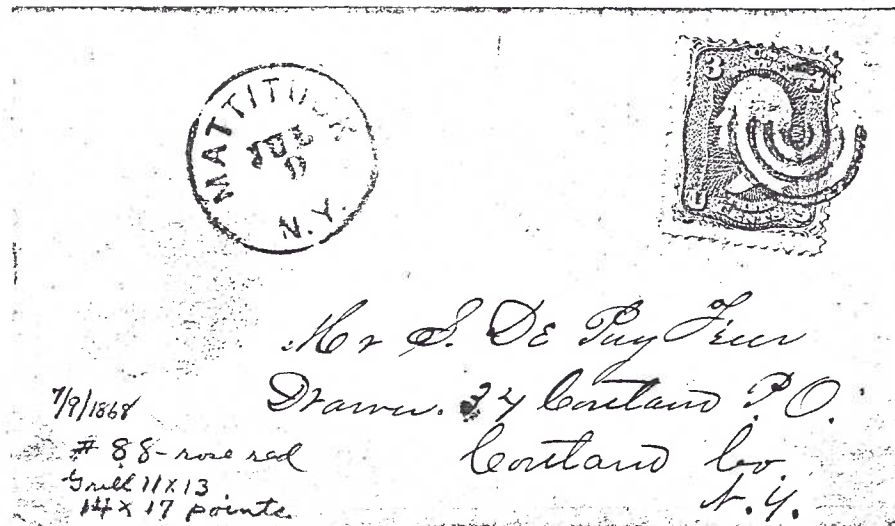 MATTITUCK
JUL
9
N.Y.
3 3
Mr S. De Puy Freer
Drawer. 24 Cortland P.O.
Cortland Co.
N.Y.
7/9/1868
# 88 - rose red
Grill 11X13
14 X 17 points